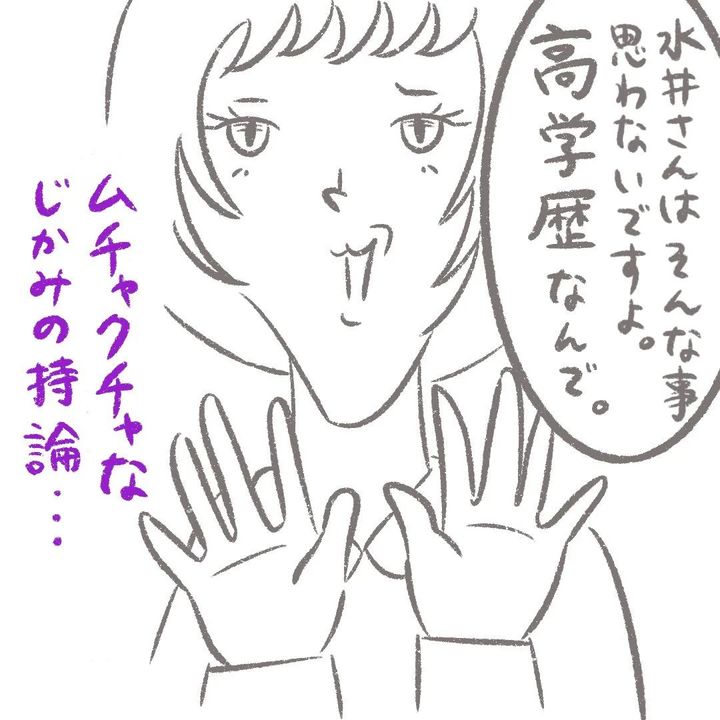 水井さんはそんな事
思わないですよ。
高学歴なんで。
ムチャクチャな
じかみの持論…